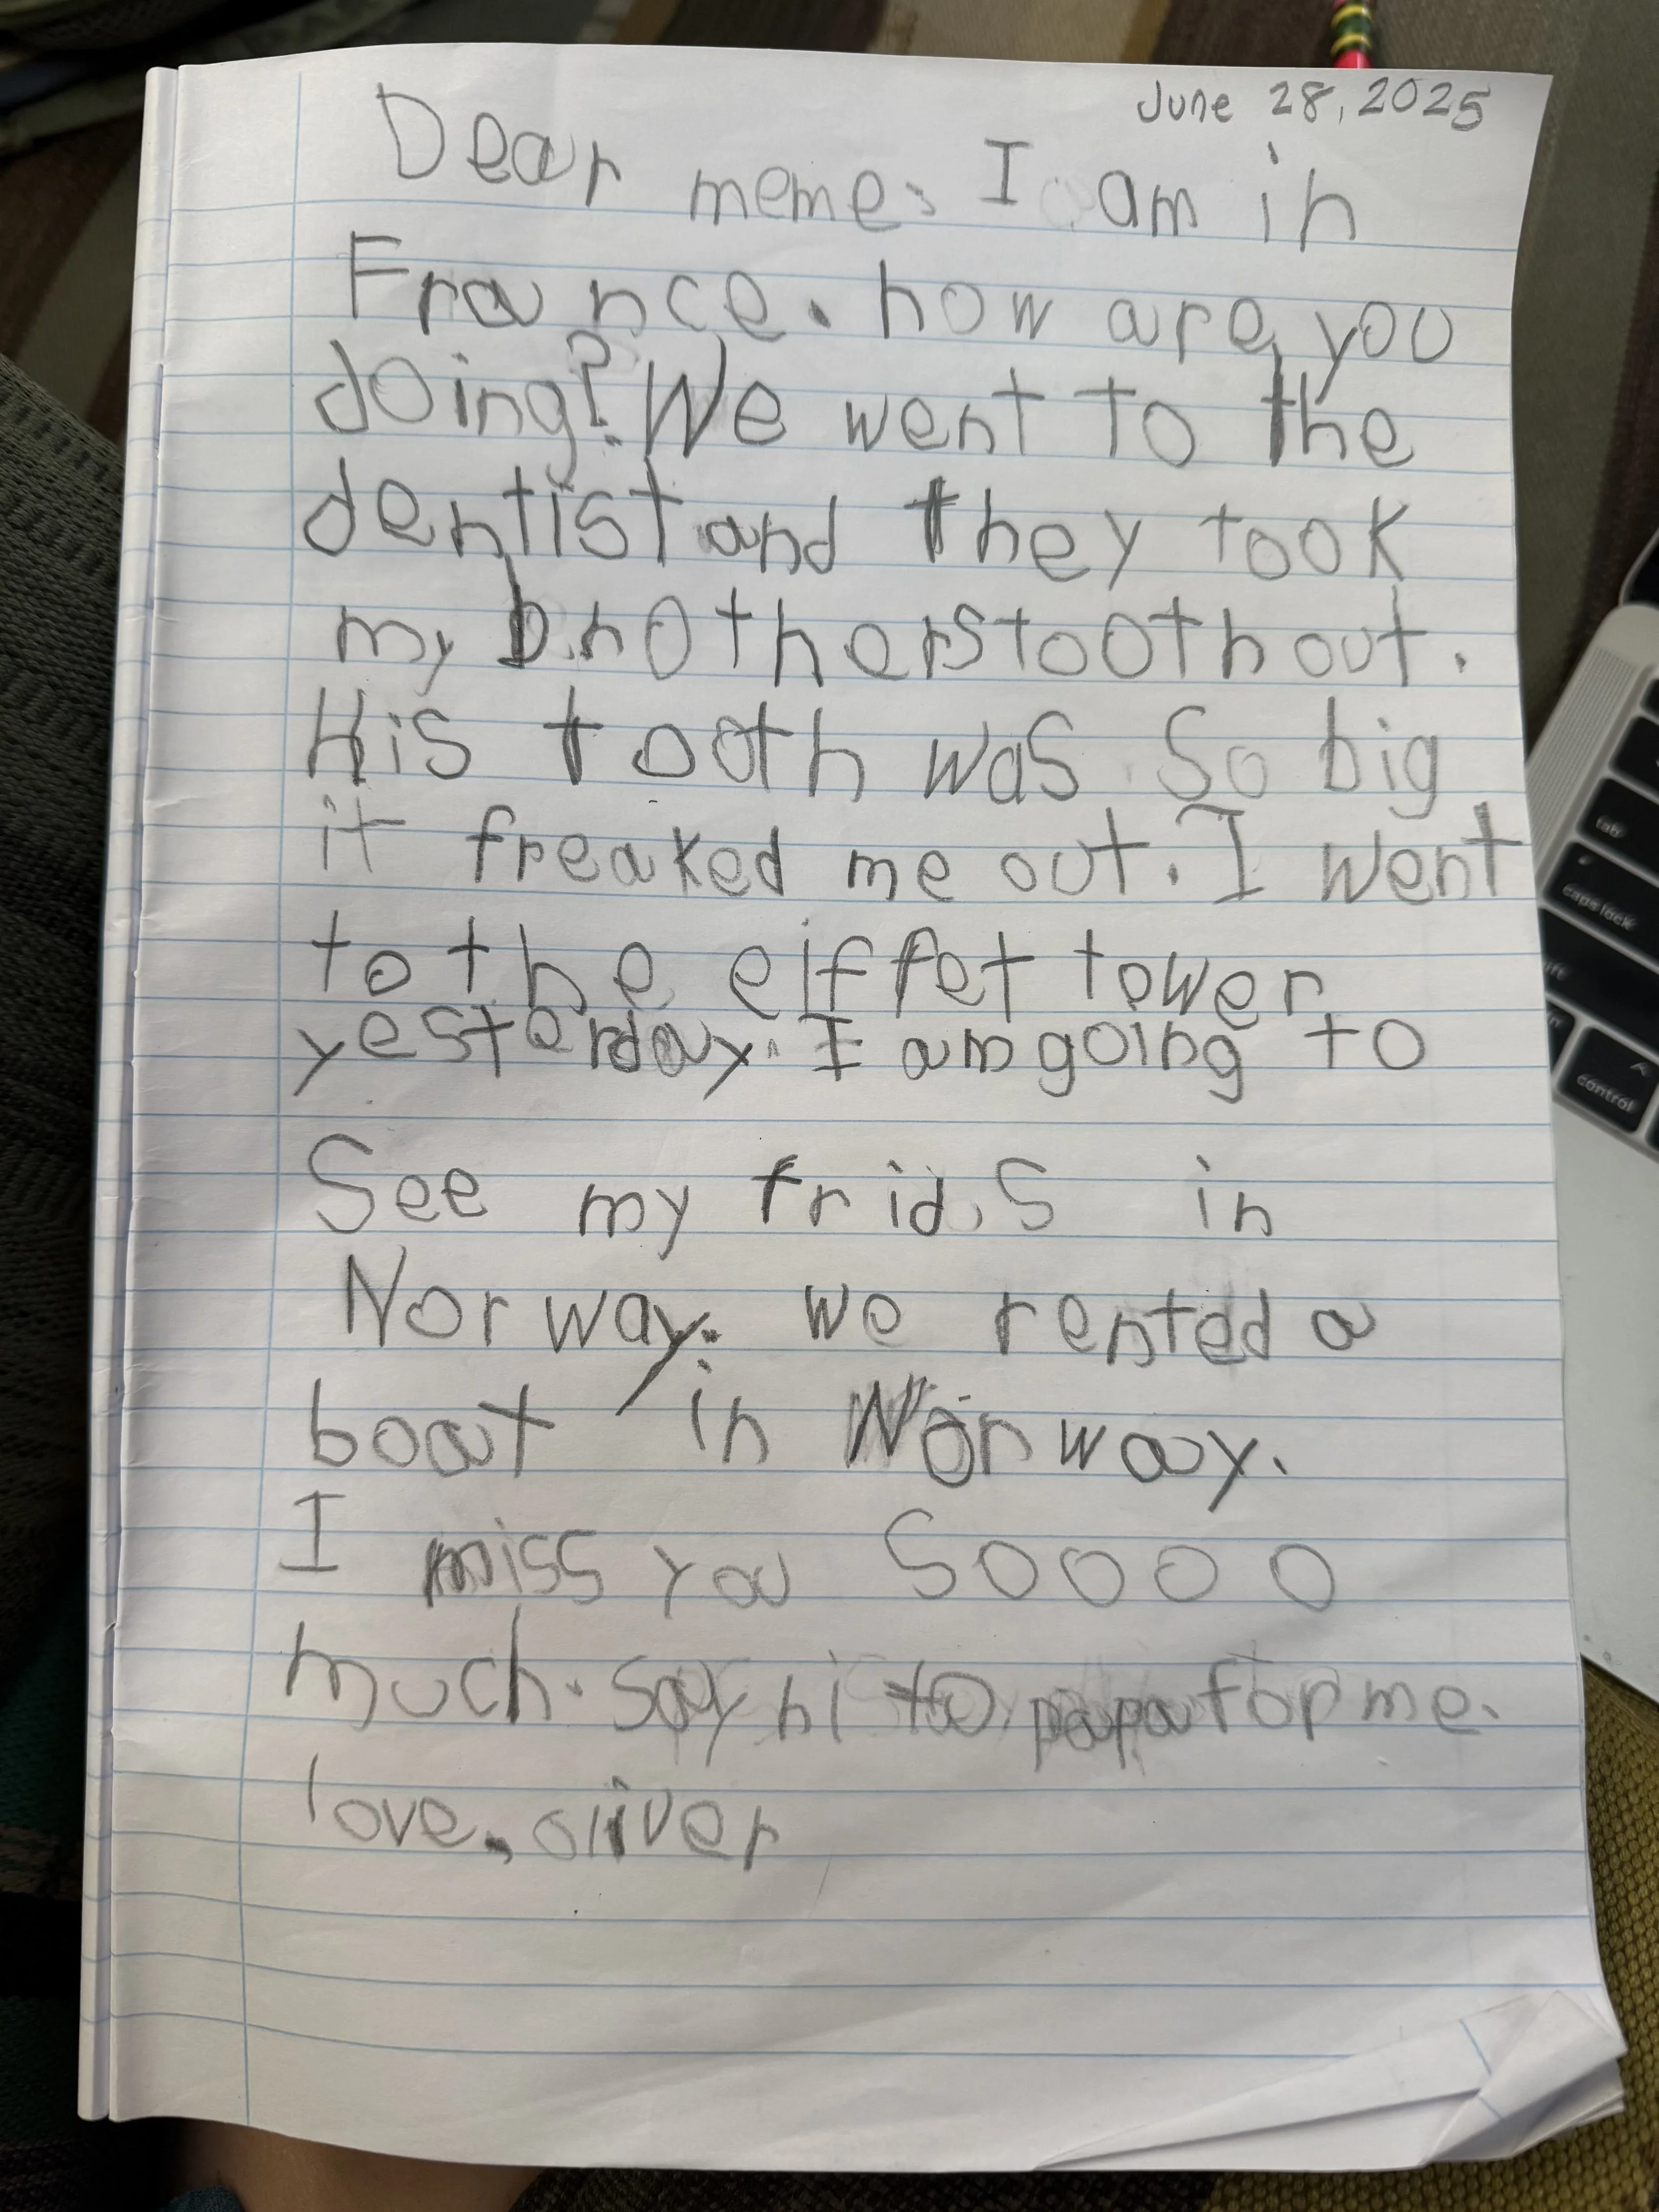 June 28, 2025
Dear meme, I am in
France. how are you
doing? We went to the
dentist and they took
my brothers tooth out.
His tooth was so big
it freaked me out. I went
to the eiffet tower
yesterday. I am going to
See my frids in
Norway. we rented a
boat in Norway.
I miss you Soooo
much. Say hi to papa for me.
love, oliver
tab
caps lock
control